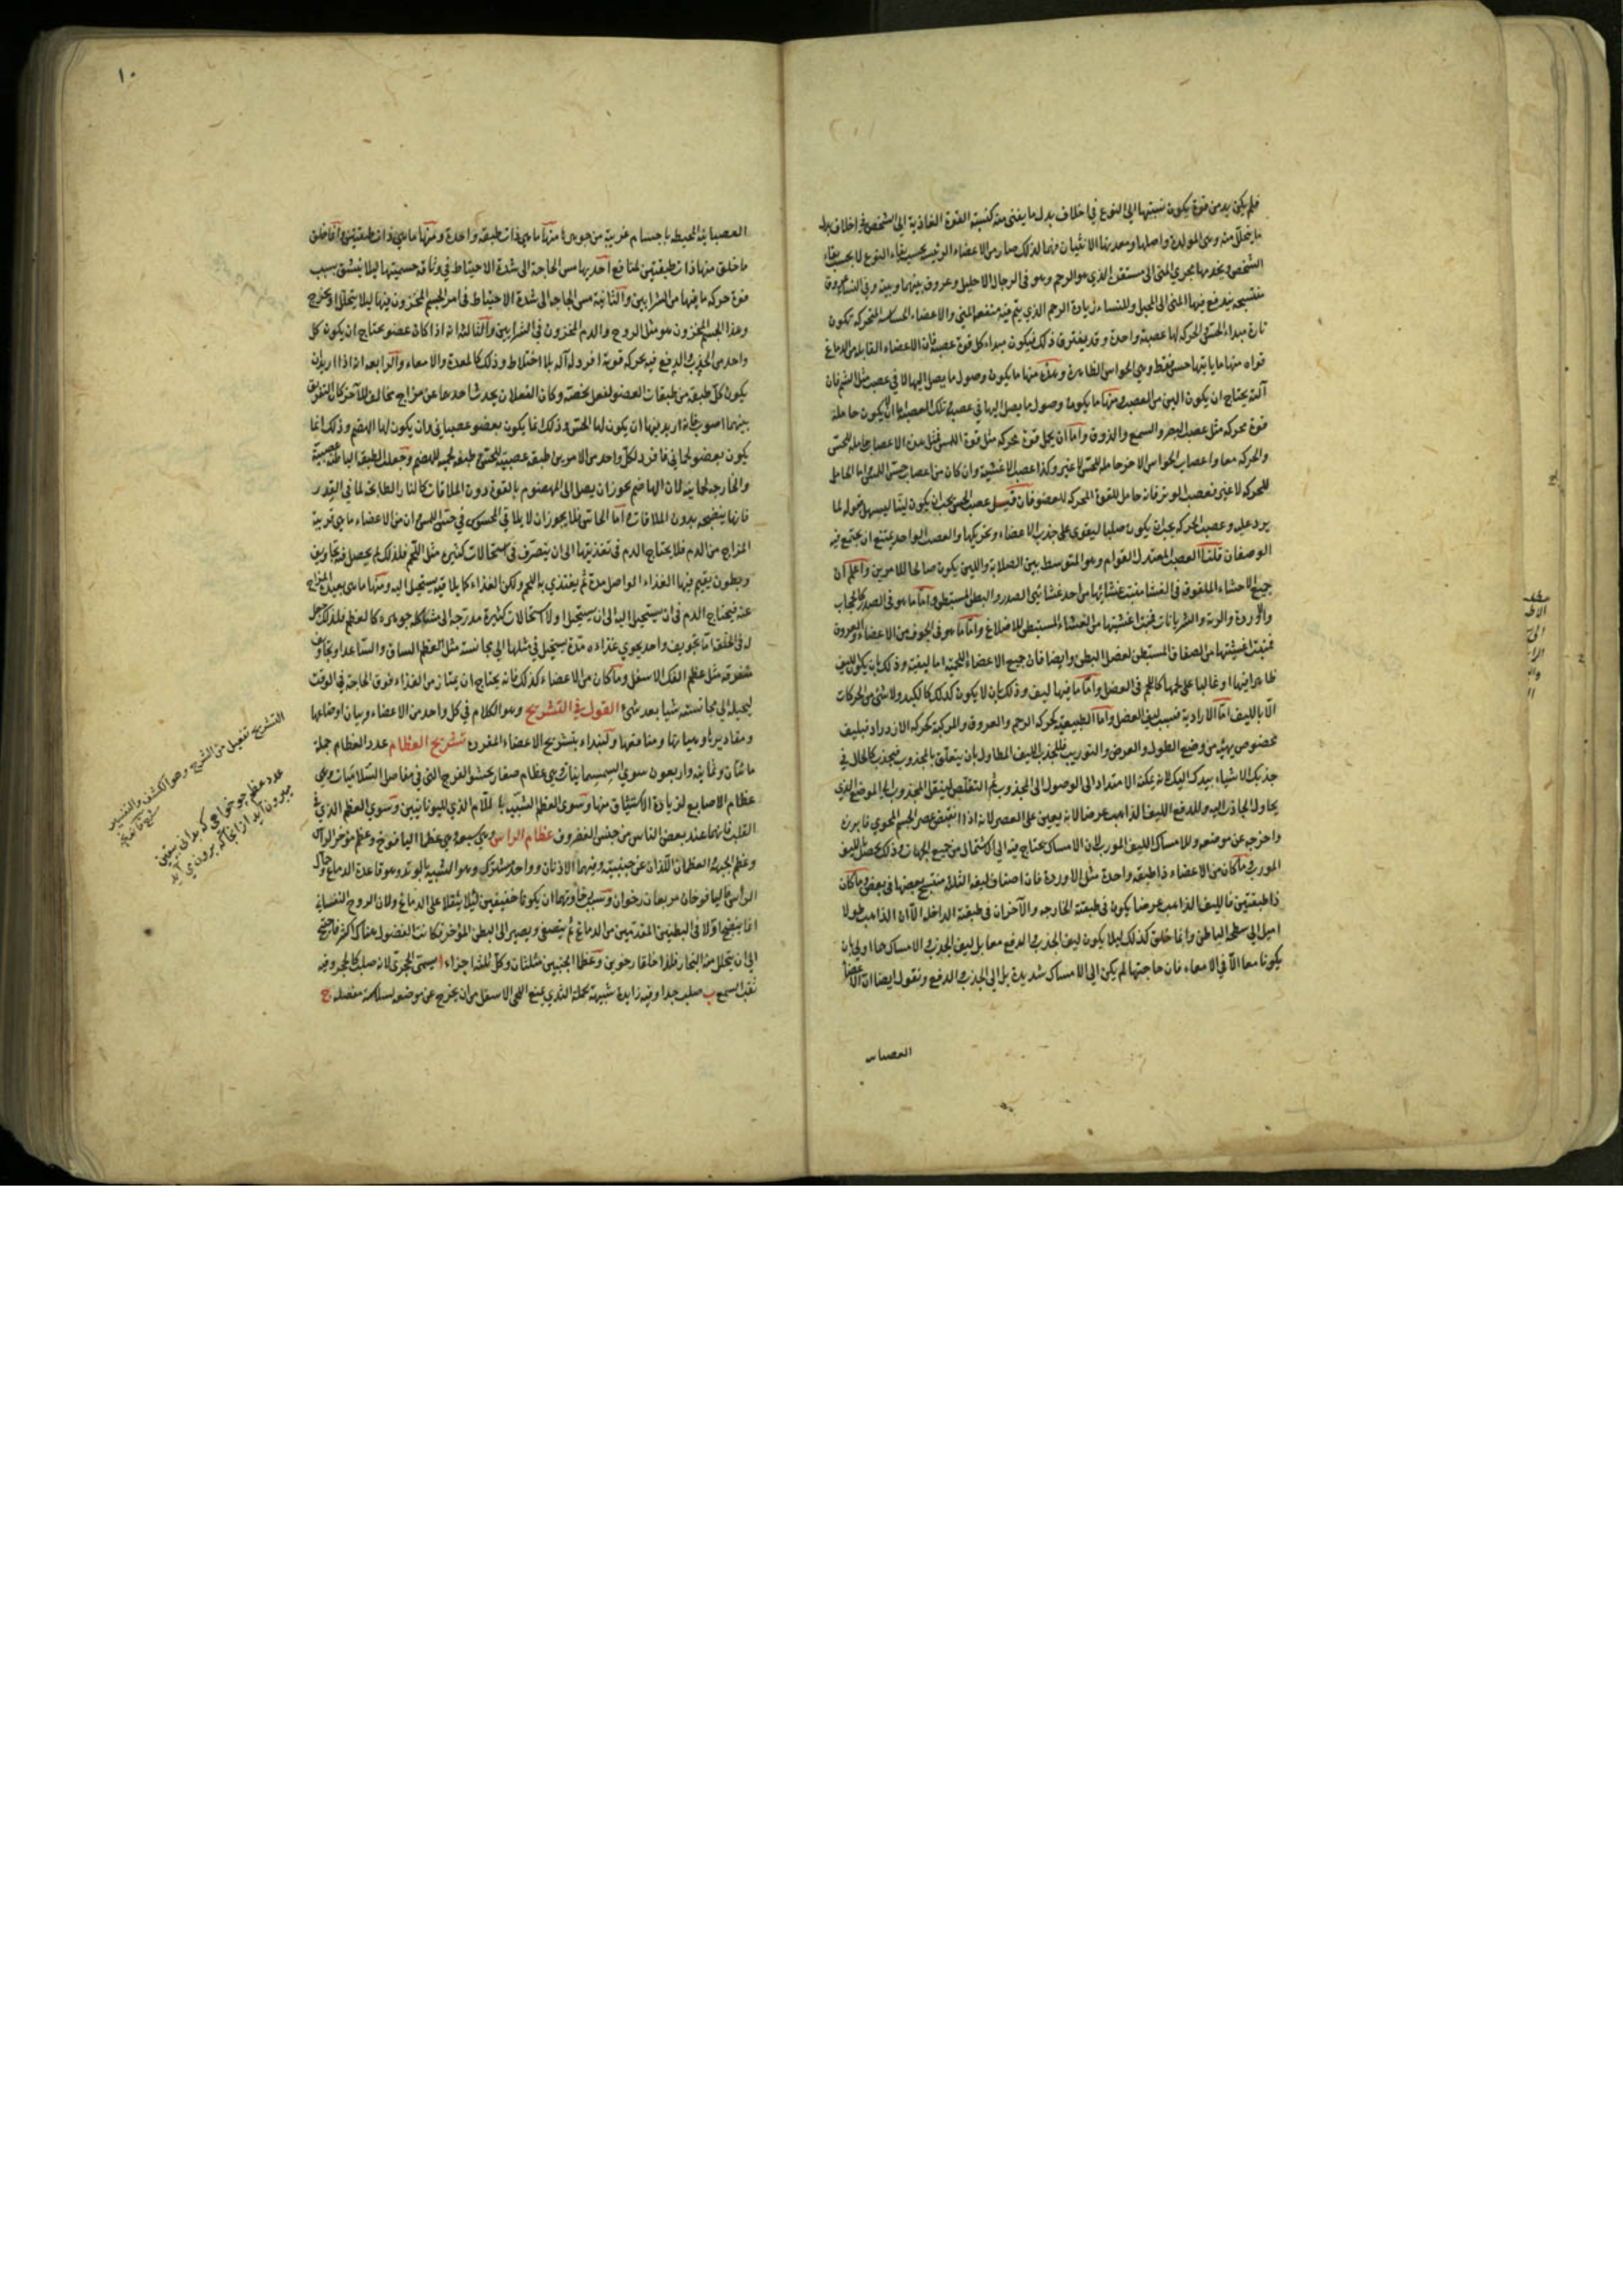 فلم يكن بد من قوة يكون نسبتها الى النوع في اخلاف بدل ما يفنى منه كنسبة القوة الغاذية الى الشخص في اخلاف بدل
ما يتحلل منه وهى المولدة واصلها ومعدنها الانثيان فهما لذلك صار من الاعضاء الرئيسه بحسب بقاء النوع لا بحسب بقاء
الشخص ويخدمها مجرى المنى الى مستقره الذي هو الرحم وهو فى الرجال الاحليل وعروق بينهما وبينه وفي النساء عروق
يندفع فيها المنى الى المحبل وللنساء زيادة الرحم الذي يتم فيه منفعة المنى والاعضاء الحساسة المتحركه تكون
تارة مبداء الحس والحركه لها عصبة واحدة وقد يفترق ذلك فيكون مبداء كل قوة عصبة فان الاعضاء القابله من الدماغ
قواه منها ما ياتيها حس فقط وهي الحواس الظاهرة وهذه منها ما يكون وصول ما يصل اليها لا في عصب مثل الشم فان
آلته يحتاج ان يكون الين من العصب ومنها ما يكون وصول ما يصل اليها في عصب وتلك العصبة اما ان لا يكون حاملة
قوة محركه مثل عصب البصر والسمع والذوق واما ان يحمل قوة محركه مثل قوة اللمس فمثل هذه الاعصاب حامله للحس
والحركه معا واعصاب الحواس الاخر حامله للحس لا غير وكذا عصب الاغشية وان كان من اعصاب حس اللمس اما الحامل
للحركه لا غير فعصب الوتر فانه حامل للقوة المحركه للعضو فان قيل عصب الحس يجب ان يكون لينا ليسهل قبوله لما
يرد عليه وعصب الحركه يجب ان يكون صلبا ليقوى على جذب الاعضاء وتحريكها والعصب الواحد يمتنع ان يجتمع فيه
الوصفان قلنا العصب المعتدل القوام وهو المتوسط بين الصلابة واللين يكون صالحا للامرين واعلم ان
جميع الاحشاء الملفوفة في الغشا منبت غشائها من احد غشائي الصدر والبطن المستبطن واما ما هو في الصدر كالحجاب
والاوردة والرية والشريانات فمنبت اغشيتها من الغشاء المستبطن للاضلاع واما ما هو فى الجوف من الاعضاء والعروق
فمنبت اغشيتها من الصفاق المستبطن لعضل البطن وايضا فان جميع الاعضاء اللحمية اما ليفية وذلك بان يكون الليف
ظاهرا فيها وغالبا على لحمها كاللحم فى العضل واما ما فيها ليف وذلك بان لا يكون كذلك كالكبد ولا شئ من الحركات
الا بالليف اما الارادية فبسبب ليف العضل واما الطبيعيه كحركه الرحم والعروق والمركبة كحركه الازدراد فبليف
مخصوص بهيئة من وضع الطول والعرض والتوريب فللجذب الليف المطاول بان يتعلق بالمجذوب فيجذب كالحال في
جذبك الاشياء بيدك اليك لانه يمكنه الامتداد الى الوصول الى المجذوب ثم التقلص لينتقل المجذوب الى الموضع الذى
يحاول الجاذب اليه وللدفع الليف الذاهب عرضا لانه يعين على العصر لانه اذا انقبض عصر الجسم المحوي فابرزه
واخرجه عن موضعه وللامساك الليف المورب لان الامساك يحتاج فيه الى اشتمال من جميع الجهات وذلك يحصل بالليف
المورب وما كان من الاعضاء ذا طبقه واحدة مثل الاوردة فان اصناف ليفه الثلثه منتسج بعضها في بعض وما كان
ذا طبقتين فالليف الذاهب عرضا يكون في طبقته الخارجه والآخران في طبقته الداخله الا ان الذاهب طولا
اميل الى سطحه الباطن وانما خلق كذلك ليلا يكون ليف الجذب والدفع معا بل ليف الجذب والامساك هما اولى بان
يكونا معا الا في الامعاء فان حاجتها لم يكن الى الامساك شديدة بل الى الجذب والدفع ونقول ايضا ان الاعضاء
العصبانيه
١٠
العصبانية المحيطه باجسام غريبة من جوهرها منها ما هى ذات طبقه واحدة ومنها ما هي ذات طبقتين وانما خلق
ما خلق منها ذات طبقتين لمنافع احديها مس الحاجة الى شدة الاحتياط في وثاقة جسميتها ليلا ينشق بسبب
قوة حركه ما فيها من الشرايين والثانيه مس الحاجه الى شدة الاحتياط فى امر الجسم المخزون فيها ليلا يتحلل او يخرج
وهذا الجسم المخزون هو مثل الروح والدم المخزون في الشرايين والثالثه انه اذا كان عضو يحتاج ان يكون كل
واحد من الجذب والدفع فيه بحركه قوية افرد له آلة بلا اختلاط وذلك كالمعدة والامعاء والرابعه انه اذا اريد ان
يكون كل طبقه من طبقات العضو لفعل يخصه وكان الفعلان يحدث احدهما عن مزاج مخالف للآخر كان التفريق
بينهما اصوب فانه اريد فيها ان يكون لها الحس وذلك انما يكون بعضو عصبانى وان يكون لها الهضم وذلك انما
يكون بعضو لحمانى فافرد لكل واحد من الامرين طبقه عصبية للحس وطبقه لحمية للهضم وجعلت الطبقه الباطنة عصبية
والخارجه لحمانيه لان الهاضم يجوز ان يصل الى المهضوم بالقوة دون الملاقات كالنار الطابخه لما في القدر
فانها ينضجه بدون الملاقات واما الحاس فلا يجوز ان لا يلاقى المحسوس في حس اللمس وان من الاعضاء ما هي قريبة
المزاج من الدم فلا يحتاج الدم فى تغذيتها الى ان يتصرف في استحالات كثيرة مثل اللحم فلذلك لم يحصل فيه تجاويف
وبطون يقيم فيها الغذاء الواصل مدة ثم يغتذي به اللحم ولكن الغذاء كما يلاقيه يستحيل اليه ومنها ما هى بعيدة المزاج
عنه فيحتاج الدم فى ان يستحيل اليه الى ان يستحيل اولا استحالات كثيرة مدرجة الى مشاكله جوهره كالعظم فلذلك جعل
له في الخلقه اما تجويف واحد يحوي غذاءه مدة يستحيل في مثلها الى مجانسته مثل العظم الساق والساعد او تجاويف
متفرقه مثل عظم الفك الاسفل وما كان من الاعضاء كذلك فانه يحتاج ان يمتاز من الغذاء فوق الحاجة في الوقت
ليحيله الى مجانسته شيا بعد شئ القول في التشريح وهو الكلام في كل واحد من الاعضاء وبيان اوضاعها
ومقاديرها وهياتها ومنافعها ولنبتداء بتشريح الاعضاء المفرده تشريح العظام عدد العظام جملة
مائتان وثمانية واربعون سوي السمسمانيات وهى عظام صغار يحشو الفرج التى في مفاصل السلاميات وهى
عظام الاصابع لزيادة الاستيثاق منها وسوى العظم الشبيه باللام الذى لليونانيين وسوي العظم الذي في
القلب فانهما عند بعض الناس من جنس الغضروف عظام الراس وهي سبعه وهى عظما اليافوخ وعظم مؤخر الراس
وعظم الجبهة والعظمان اللذان عن جنبيه وفيهما الاذنان وواحد مشترك وهو الشبيه بالوتد وهو قاعدة الدماغ وحمال
الراس فاليافوخان مربعان رخوان وسبب رخاوتهما ان يكونا خفيفين ليلا يثقلا على الدماغ ولان الروح النفسانية
انما ينضج اولا فى البطنين المقدمين من الدماغ ثم يتصفى ويصير الى البطن المؤخر فكانت الفضول هناك اكثر فاحتيج
الى ان يتحلل منه البخار فلذا خلقا رخوين وعظما الجنبين مثلثان وكل ثلثه اجزاء ا يسمى الحجرى لانه صلب كالحجر وفيه
ثقب السمع ب صلب جدا وفيه زايدة شبيهة بحلمة الثدي يمنع اللحى الاسفل من ان يخرج عن موضعه لسلاسة مفصله ج
التشريح تفعيل من الشرح وهو الكشف والتفسير
عدد عظم چو خواهى كه بدانى بيقين
بيرون آيد از انجا كه برون مى آيد